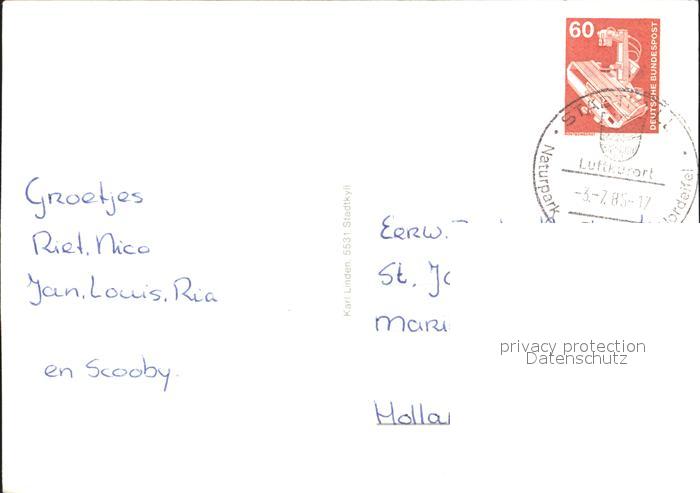 60
DEUTSCHE BUNDESPOST
Luftkurort
-3.-7.85-17
Naturpark
Nordeifel
Groetjes
Riet. Nico
Jan. Louis. Ria
en Scooby.
Karl Linden, 5531 Stadtkyll
Eerw.
St. Jo
Mari
Hollan
privacy protection
Datenschutz